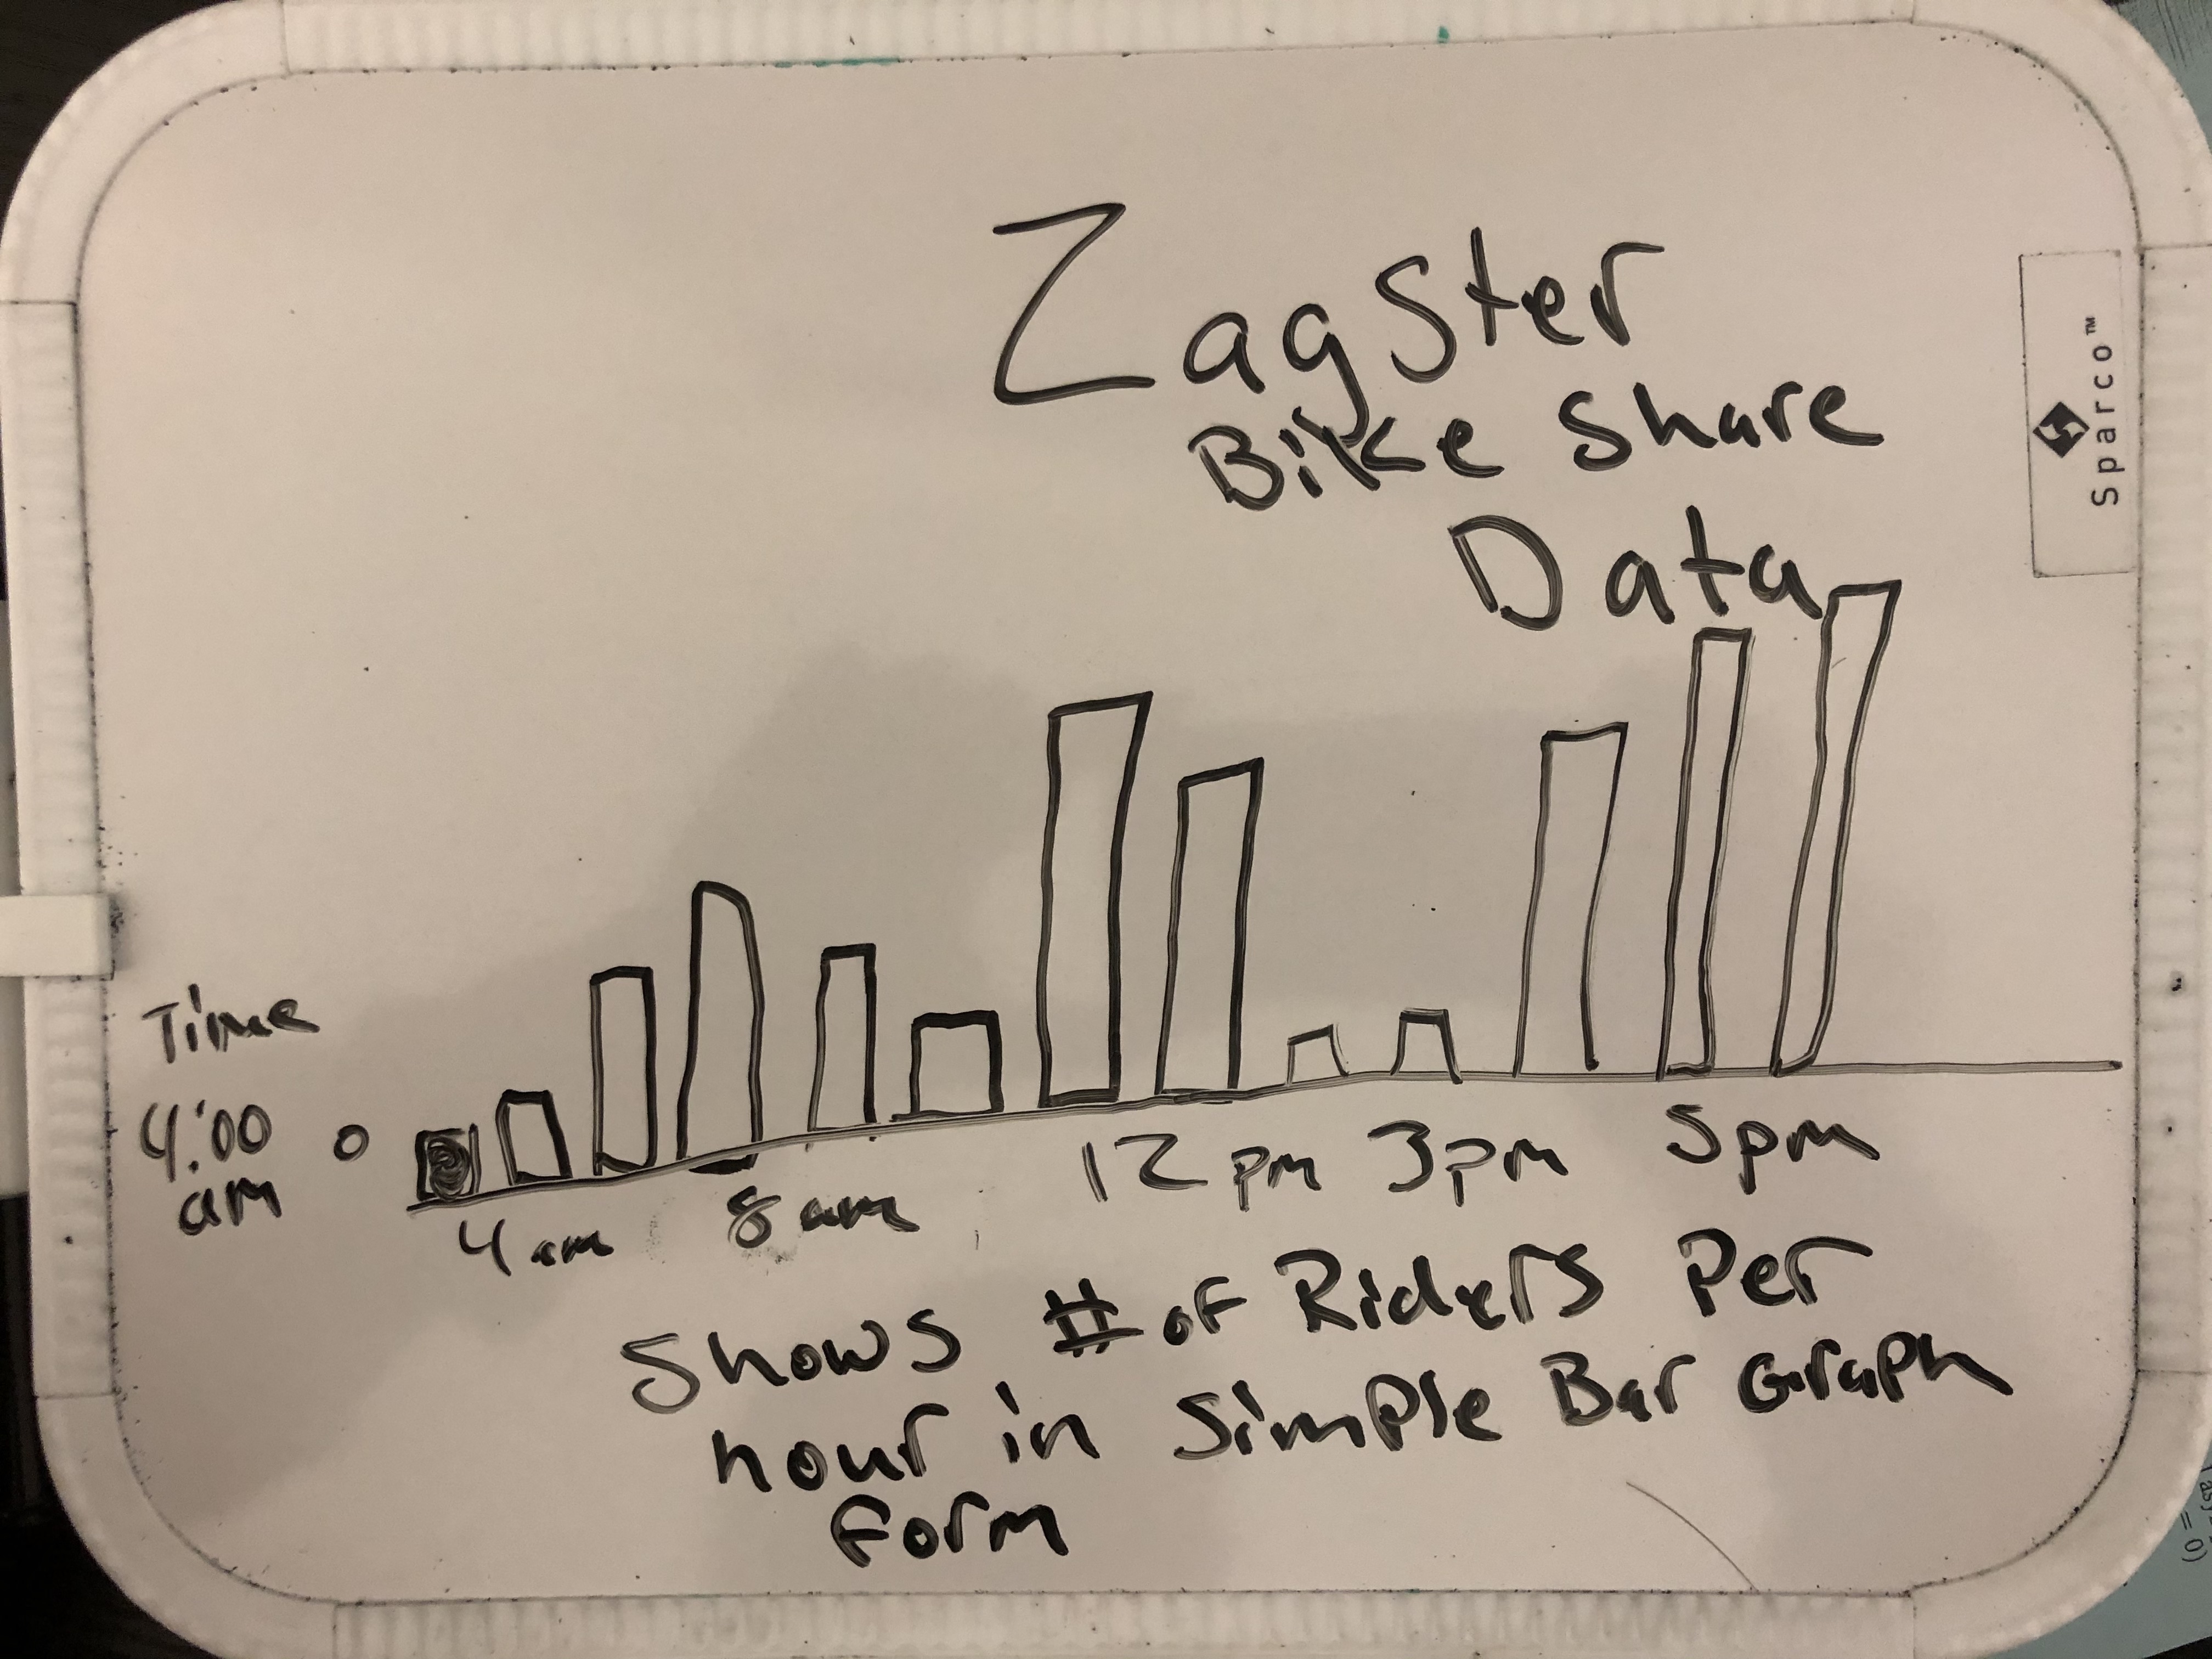 Zagster
Bike Share
Data
Sparco™
Time
4:00 0
am
4am 8am 12pm 3pm 5pm
Shows # of Riders Per
hour in Simple Bar Graph
form